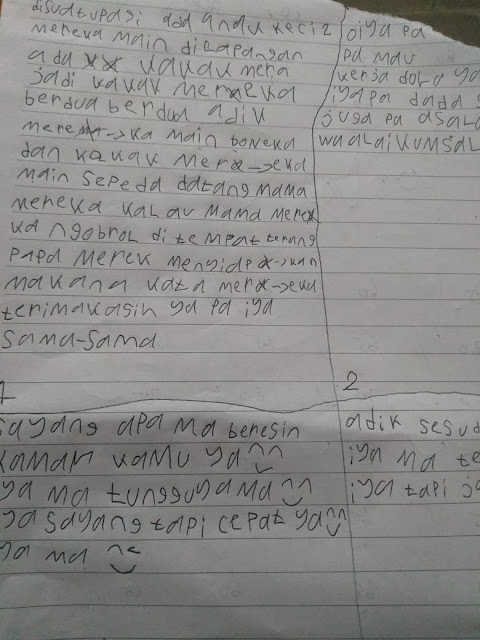 disuatupagi ada andk kecil 2
mereka main dilapangan
ada kakak mera
jadi kakak mereka
berdua berdua adik
mere->ka main boneka
dan kakak mer->eka
main sepeda datang mama
mereka kalau mama merek
ka ngobrol di tempat terang
papa merek menyiap->kan
makana kata mer->eka
terimakasih ya pa iya
sama-sama
oiya pa
pa mau
kerja dulu ya
iya pa dada
juga pa asala
waalaikumsal
1
sayang apa ma beresin
kamar kamu ya
ya ma tungguya ma
ya sayang tapi cepat ya
ya ma
2
adik sesud
iya ma te
iya tapi ja